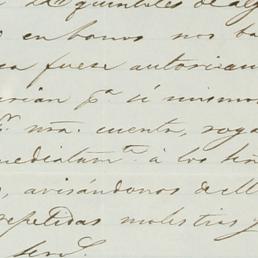 quintales de al
en bonos nos ba
ca fuese autorizan
arian pª si mismos
nrª. cuenta, roga
mediatamte. à los
s, avisándonos del
repetidas molestias y
serv.